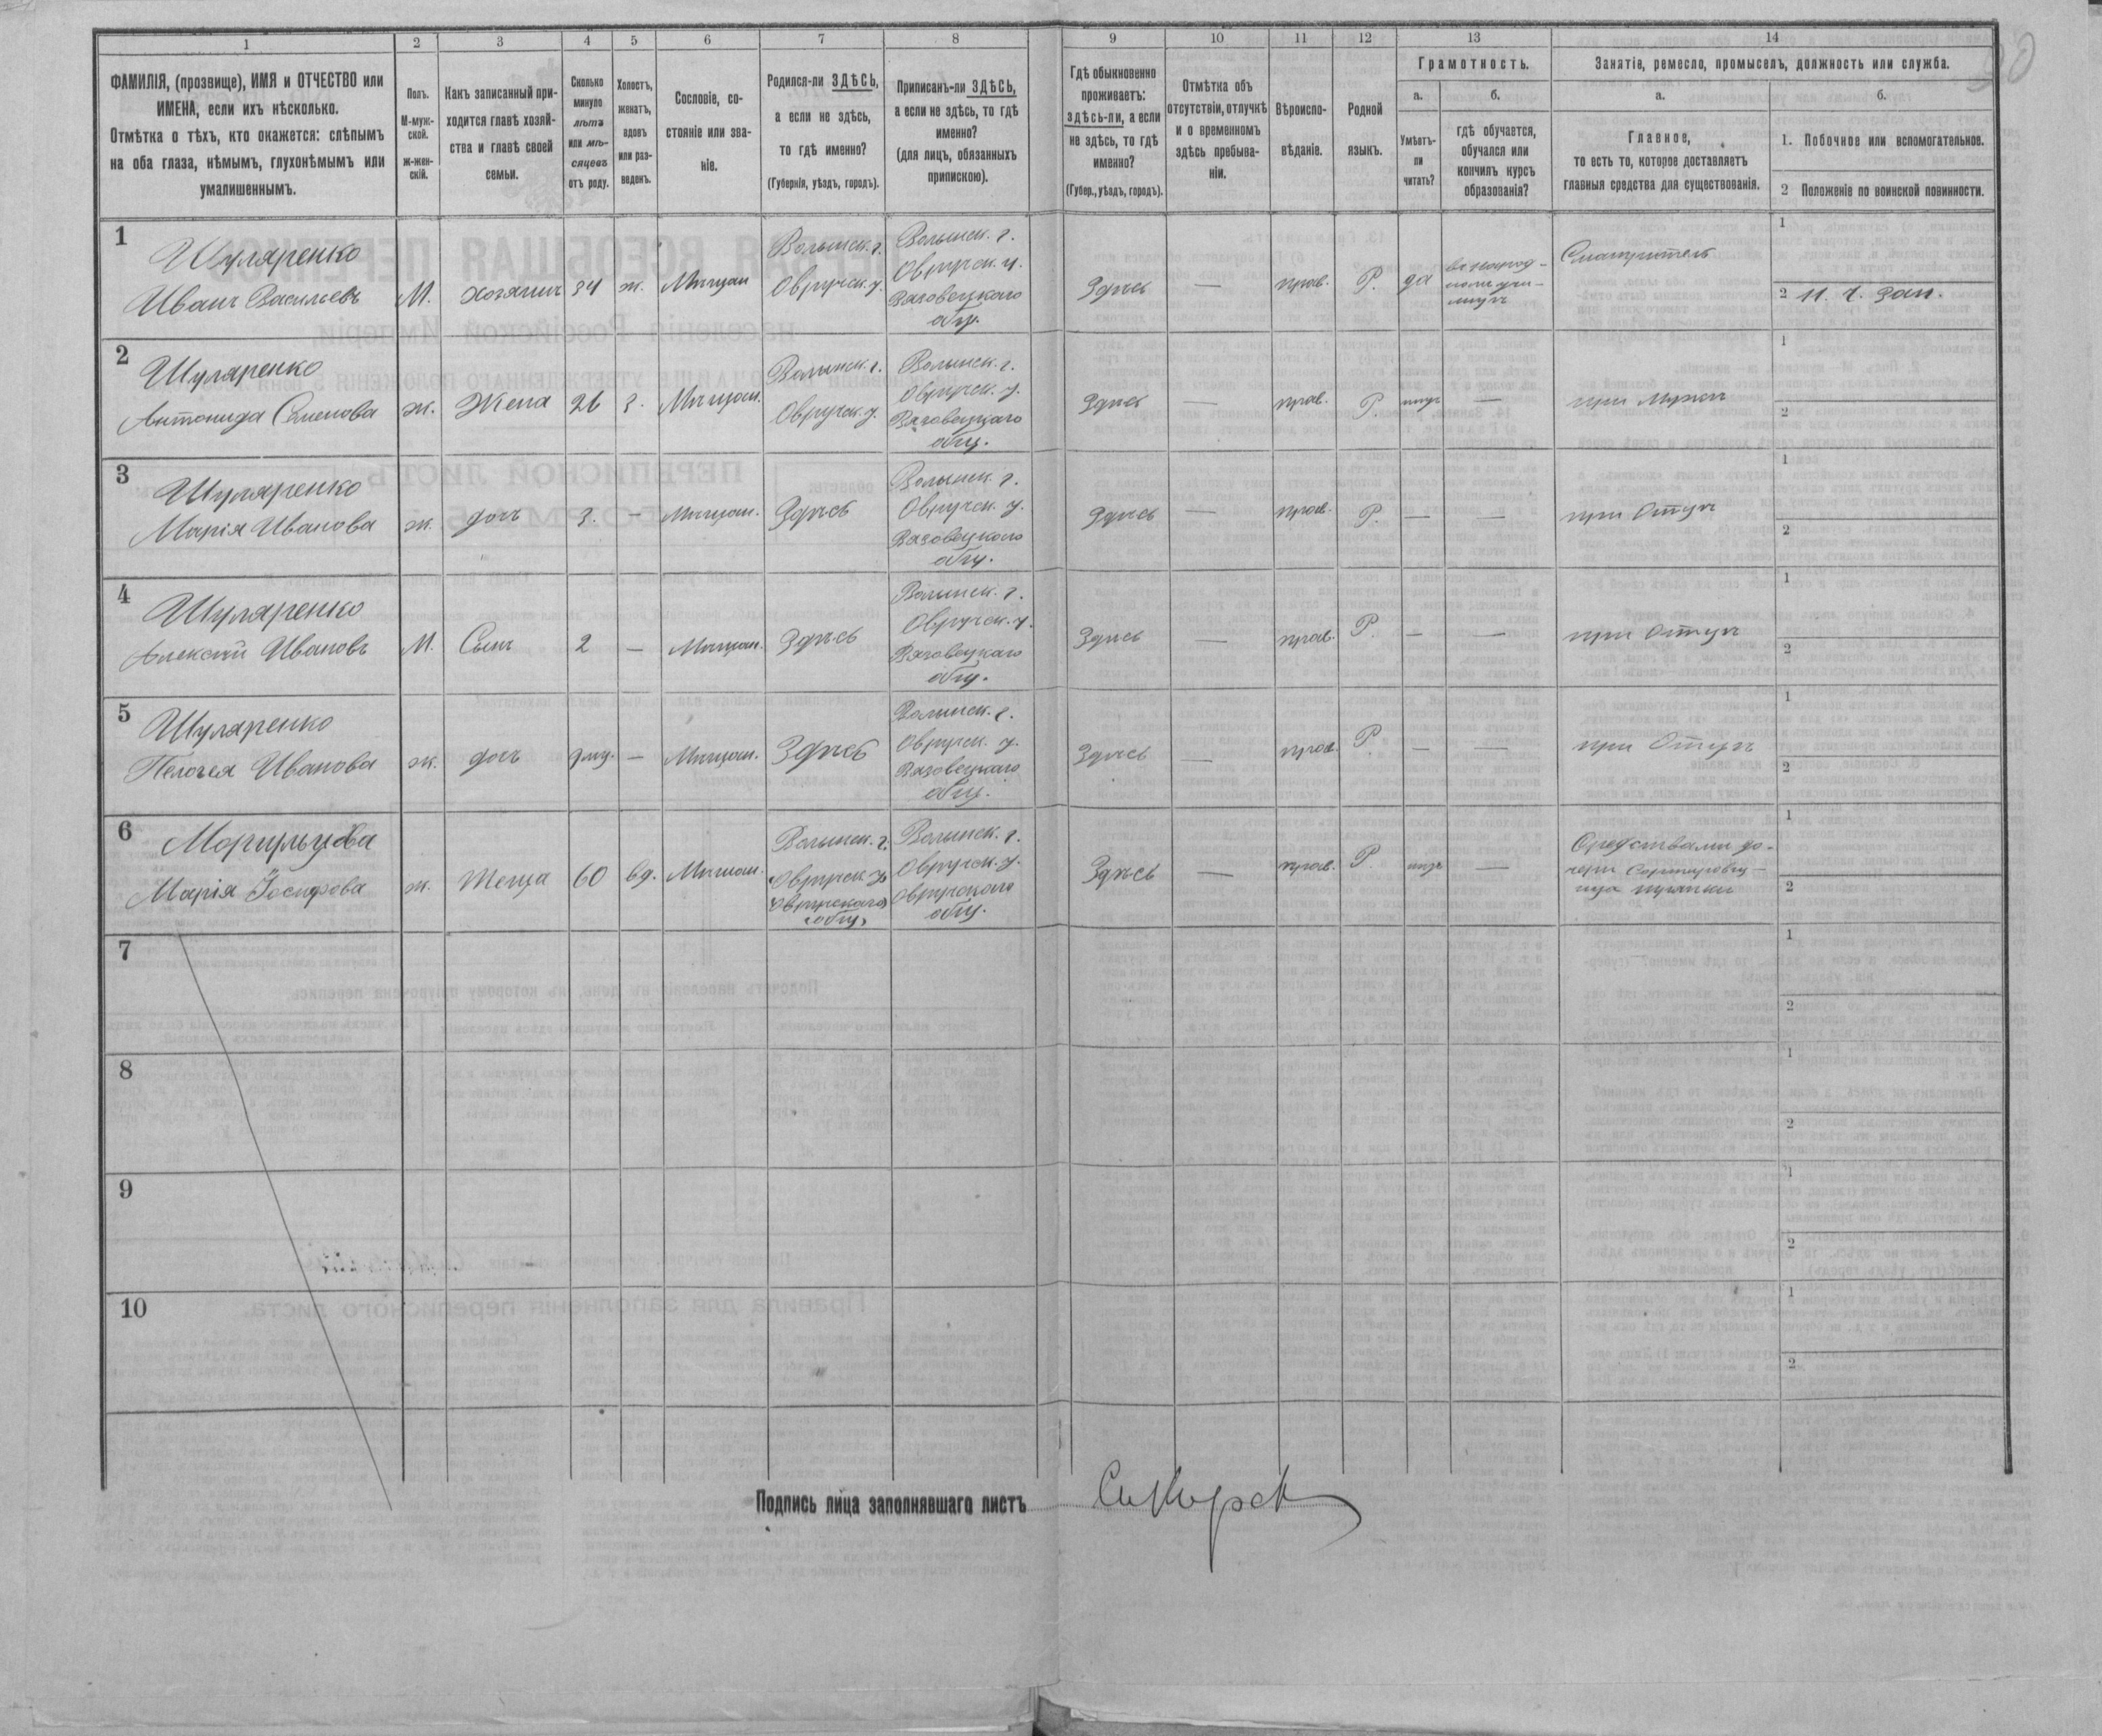 1 2 3 4 5 6 7 8 9 10 11 12 13 14
ФАМИЛІЯ, (прозвище), ИМЯ и ОТЧЕСТВО или
ИМЕНА, если ихъ нѣсколько.
Отмѣтка о тѣхъ, кто окажется: слѣпымъ
на оба глаза, нѣмымъ, глухонѣмымъ или
умалишеннымъ.
Полъ.
М-муж-
ской.
ж-жен-
скій.
Какъ записанный при-
ходится главѣ хозяй-
ства и главѣ своей
семьи.
Сколько
минуло
лѣтъ
или мѣ-
сяцевъ
отъ роду.
Холостъ,
женатъ,
вдовъ
или раз-
веденъ.
Сословіе, со-
стояніе или зва-
ніе.
Родился-ли ЗДѢСЬ,
а если не здѣсь,
то гдѣ именно?
(Губернія, уѣздъ, городъ).
Приписанъ-ли ЗДѢСЬ,
а если не здѣсь, то гдѣ
именно?
(для лицъ, обязанныхъ
припискою).
Гдѣ обыкновенно
проживаетъ:
здѣсь-ли, а если
не здѣсь, то гдѣ
именно?
(Губер., уѣздъ, городъ).
Отмѣтка объ
отсутствіи, отлучкѣ
и о временномъ
здѣсь пребыва-
ніи.
Вѣроиспо-
вѣданіе.
Родной
языкъ.
Грамотность.
а.
Умѣетъ-
ли
читать?
б.
гдѣ обучается,
обучался или
кончилъ курсъ
образованія?
Занятіе, ремесло, промыселъ, должность или служба.
а.
Главное,
то есть то, которое доставляетъ
главныя средства для существованія.
б.
1. Побочное или вспомогательное.
2 Положеніе по воинской повинности.
1
Шуляренко
Иванъ Васильевъ
М.
хозяинъ
34
ж.
Мѣщан
Волынск. г.
Овручск. у.
Волынск. г.
Овручск. у.
Вязовецкаго
общ.
Здѣсь
—
прав.
Р.
да
въ народ-
номъ учи-
лищѣ
Смотритель
1
2 н. ч. зап.
2
Шуляренко
Антонида Семенова
ж.
Жена
26
з.
Мѣщан.
Волынск. г.
Овручск. у.
Волынск. г.
Овручск. у.
Вязовецкаго
общ.
Здѣсь
—
прав.
Р.
нѣтъ
—
при Мужѣ
1
2
3
Шуляренко
Марія Иванова
ж.
дочь
3.
—
Мѣщан.
Здѣсь
Волынск. г.
Овручск. у.
Вязовецкаго
общ.
Здѣсь
—
прав.
Р.
—
—
при Отцѣ
1
2
4
Шуляренко
Алексѣй Ивановъ
М.
Сынъ
2
—
Мѣщан.
Здѣсь
Волынск. г.
Овручск. у.
Вязовецкаго
общ.
Здѣсь
—
прав.
Р.
—
—
при Отцѣ
1
2
5
Шуляренко
Пелогея Иванова
ж.
дочь
—
Мѣщан.
Здѣсь
Волынск. г.
Овручск. у.
Вязовецкаго
общ.
Здѣсь
—
прав.
Р.
—
—
при Отцѣ
1
2
6
Марія Іосифова
ж.
Теща
60
вд.
Мѣщан.
Волынск. г.
Овручск. у.
Овручскаго
общ.
Волынск. г.
Овручск. у.
Овручскаго
общ.
Здѣсь
—
прав.
Р.
нѣтъ
—
Средствами до-
чери
1
2
7
1
2
8
1
2
9
1
2
10
1
2
Подпись лица заполнявшаго листъ